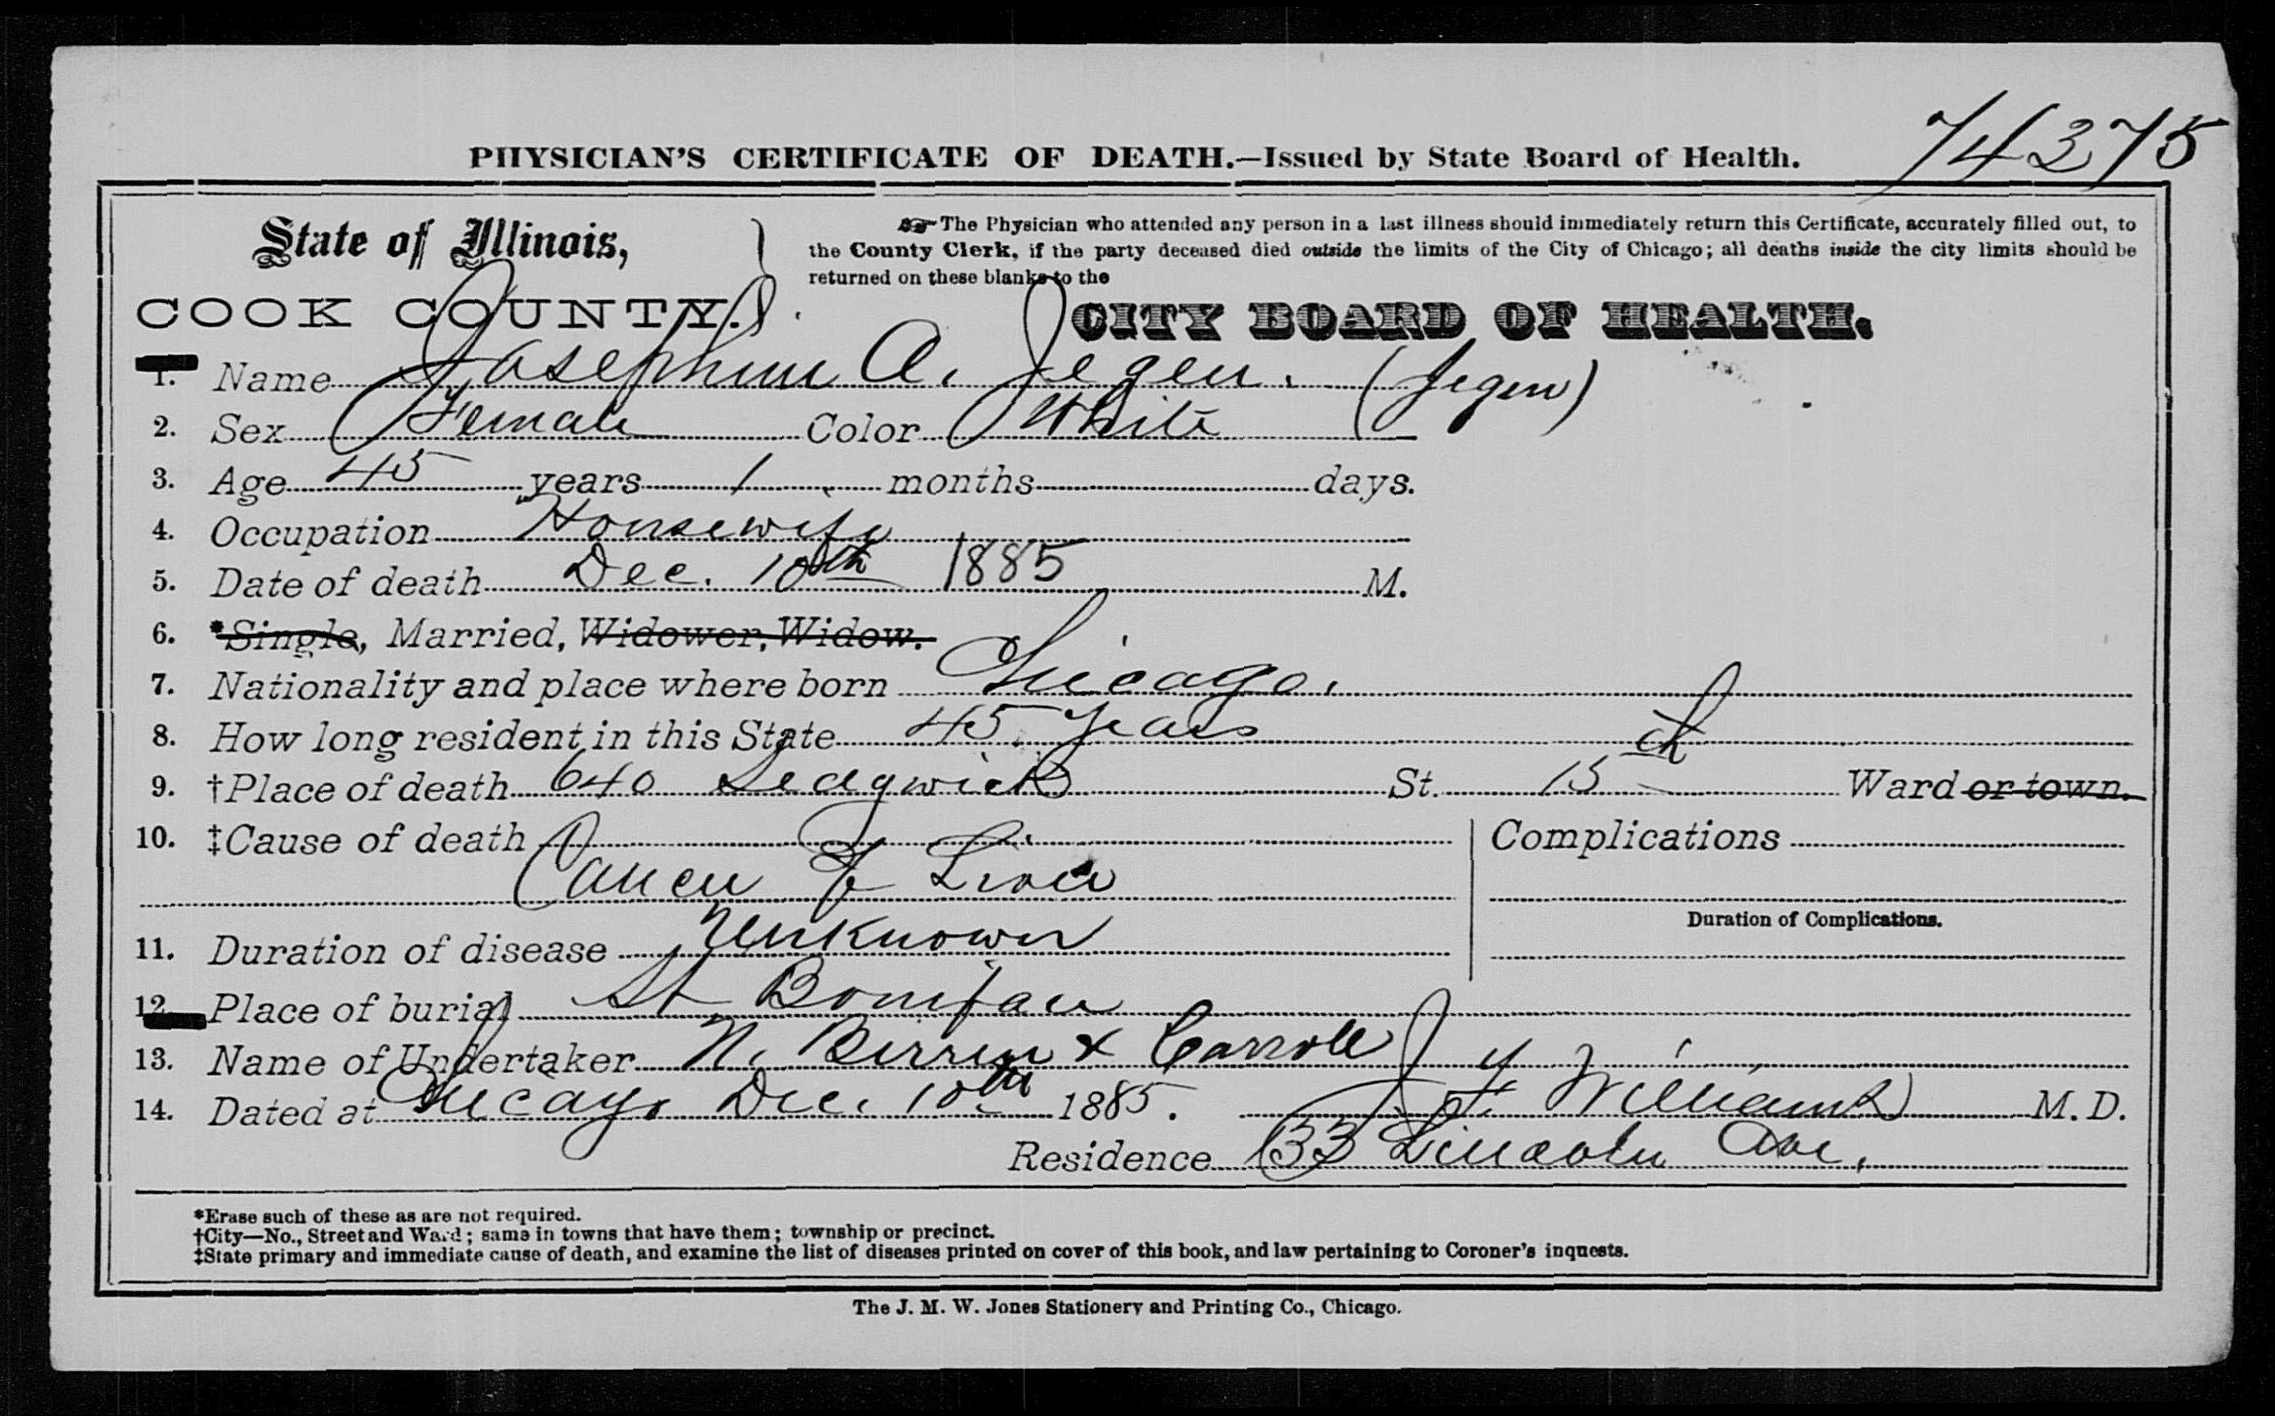 74375
PHYSICIAN'S CERTIFICATE OF DEATH.—Issued by State Board of Health.
State of Illinois,
COOK COUNTY.
☞ The Physician who attended any person in a last illness should immediately return this Certificate, accurately filled out, to
the County Clerk, if the party deceased died outside the limits of the City of Chicago; all deaths inside the city limits should be
returned on these blanks to the
CITY BOARD OF HEALTH.
1. Name Josephine A. Jegen. (Jegen)
2. Sex Female Color White
3. Age 45 years 1 months days.
4. Occupation Housewife
5. Date of death Dec. 10th 1885 M.
6. *Single, Married, Widower, Widow.
7. Nationality and place where born Chicago.
8. How long resident in this State 45 years
9. †Place of death 640 Sedgwick St. 15th Ward or town.
10. ‡Cause of death Complications
Cancer of Liver
Duration of Complications.
11. Duration of disease Unknown
12. Place of burial St Boniface
13. Name of Undertaker N. Birren & Carroll
14. Dated at Chicago Dec. 10th 1885. Williams M.D.
Residence 133 Lincoln Ave.
*Erase such of these as are not required.
†City—No., Street and Ward; same in towns that have them; township or precinct.
‡State primary and immediate cause of death, and examine the list of diseases printed on cover of this book, and law pertaining to Coroner's inquests.
The J. M. W. Jones Stationery and Printing Co., Chicago.